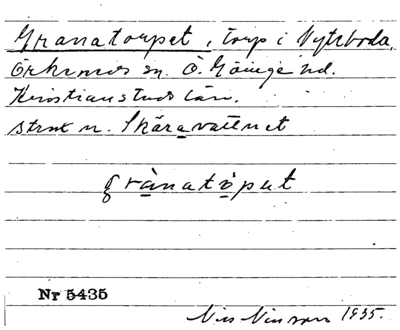 Granatorpet, torp i Vyteboda,
Örkeneds sn. Ö. Göinge hd.
Kristianstads län.
strax n. Skäravattnet
grànatòput
Nr 5435
Nils Nilsson 1935.